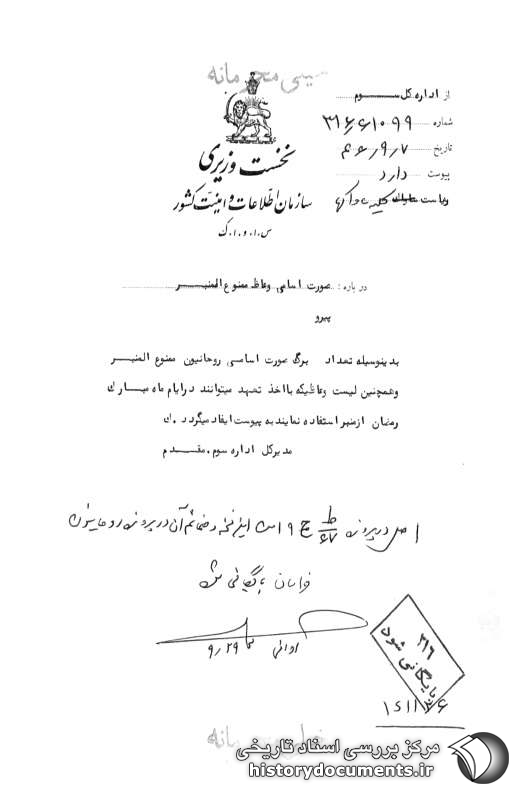 خیلی محرمانه
از اداره کل ســـوم
شماره ۳۱۶/۶۱۰۹۹
تاریخ ۴۶/۹/۷
پیوست دارد
ریاست ساواک
نخست وزیری
سازمان اطلاعات و امنیت کشور
س.ا.و.ا.ک
درباره : صورت اسامی وعاظ ممنوع المنبـــر
پیرو
بدینوسیله تعداد برگ صورت اسامی روحانیون ممنوع المنبـر
وهمچنین لیست وعاظیکه بااخذ تعهد میتوانند درایام ماه مبارک
رمضان ازمنبر استفاده نمایند به پیوست ایفاد میگردد .ک
مدیرکل اداره سوم . مقـــدم
اصل در پرونده ط ۶۷ ج ۹ است این نسخه و ضمائم آن در پرونده روحانیون
خراسان بایگانی شود
۹/۲۹
۳۱۶
بایگانی شود
خیلی محرمانه
مرکز بررسی اسناد تاریخی
historydocuments.ir